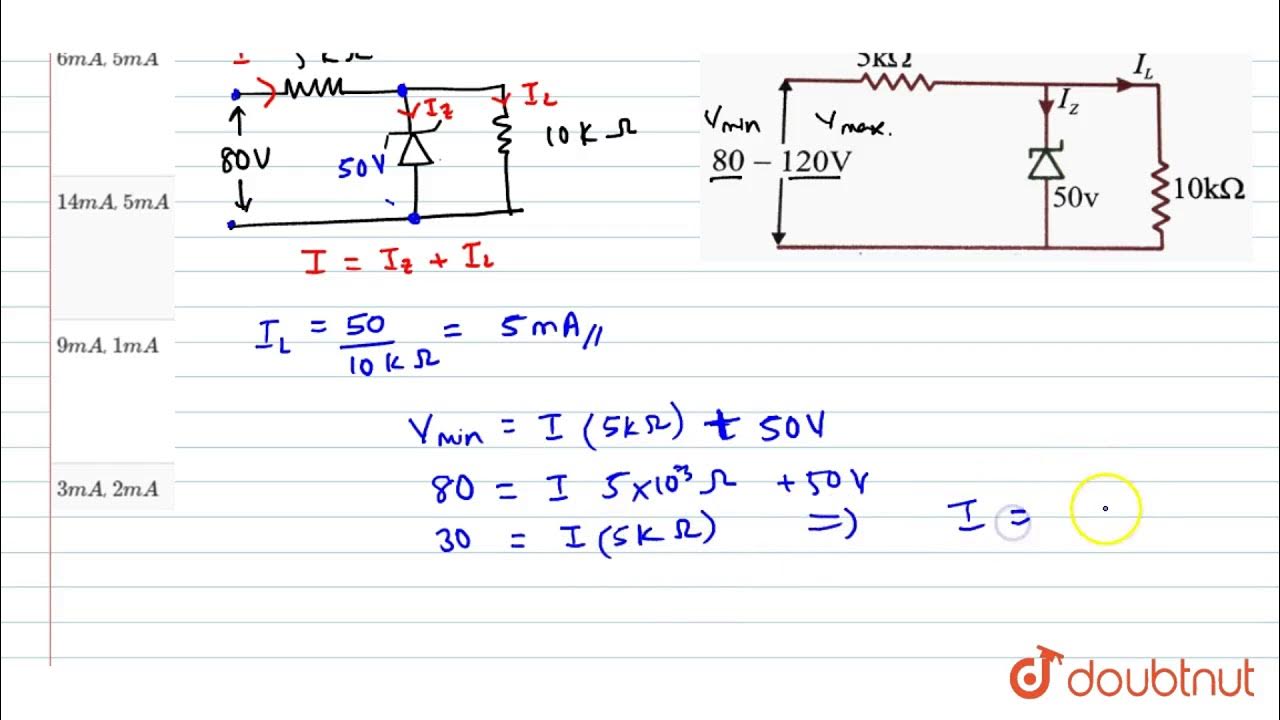 6mA, 5mA
14mA, 5mA
9mA, 1mA
3mA, 2mA
I
5kΩ
80V
50V
IZ
IL
10kΩ
I = IZ + IL
5kΩ
IL
IZ
Vmin Vmax.
80 – 120V
50v
10kΩ
IL = 50/10kΩ = 5mA//
Vmin = I (5kΩ) + 50V
80 = I 5×10³Ω + 50V
30 = I (5kΩ) ⇒ I =
doubtnut